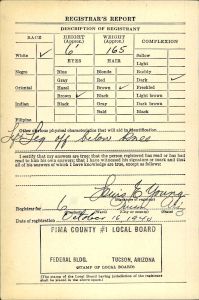 REGISTRAR'S REPORT
DESCRIPTION OF REGISTRANT
RACE
HEIGHT (Approx.)
WEIGHT (Approx.)
COMPLEXION
White ✓
6'
165
Sallow
EYES
HAIR
Light
Negro
Blue
Blonde
Ruddy
Gray
Red
Dark ✓
Oriental
Hazel
Brown ✓
Freckled
Brown ✓
Black
Light brown
Indian
Black
Gray
Dark brown
Bald
Black
Filipino
Other obvious physical characteristics that will aid in identification
Leg off below knee
I certify that my answers are true; that the person registered has read or has had
read to him his own answers; that I have witnessed his signature or mark and that
all of his answers of which I have knowledge are true, except as follows:
Lewis E. Young
Registrar for 6
Ariz
Date of registration October 16 1940
PIMA COUNTY #1 LOCAL BOARD
FEDERAL BLDG. TUCSON, ARIZONA.
(STAMP OF LOCAL BOARD)
(The stamp of the Local Board having jurisdiction of the registrant
shall be placed in the above space.)